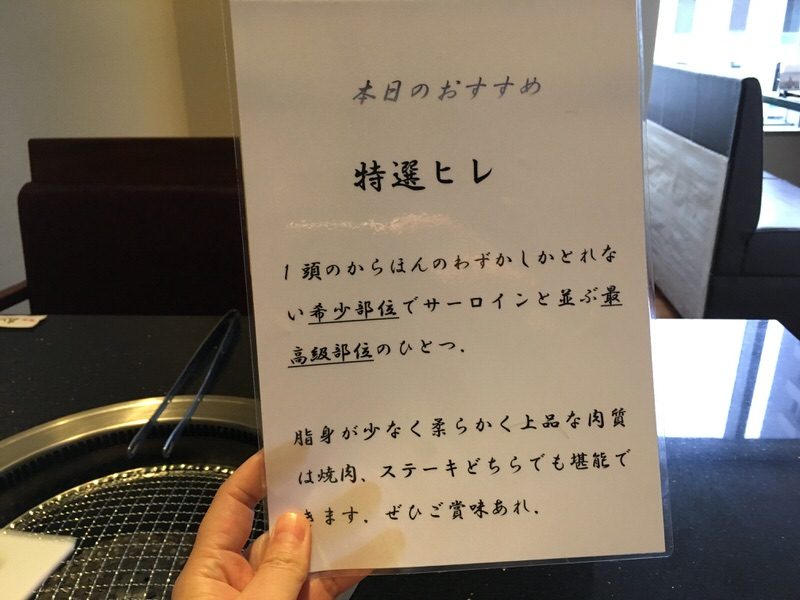 本日のおすすめ
特選ヒレ
1頭のからほんのわずかしかとれな
い希少部位でサーロインと並ぶ最
高級部位のひとつ.
脂身が少なく柔らかく上品な肉質
は焼肉、ステーキどちらでも堪能で
きます. ぜひご賞味あれ.